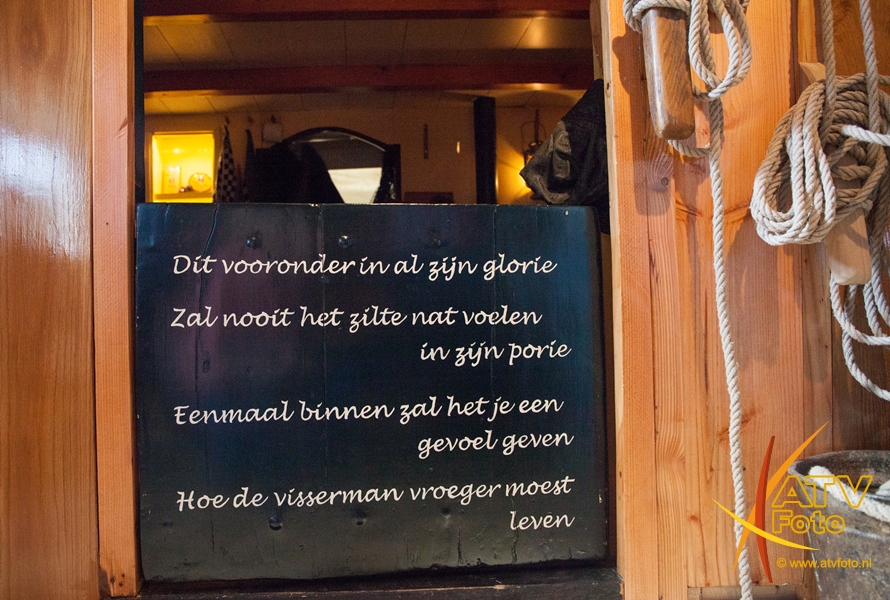 Dit vooronder in al zijn glorie
Zal nooit het zilte nat voelen
in zijn porie
Eenmaal binnen zal het je een
gevoel geven
Hoe de visserman vroeger moest
leven
ATV
Foto
© www.atvfoto.nl